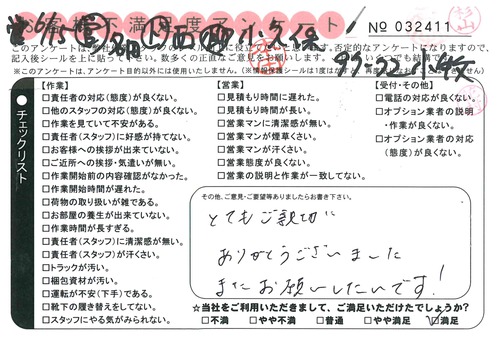 お客様不満足度アンケート
№ 032411
このアンケートは、弊社
記入後シールを上に貼って下さい。数多くの正直なご意見をお願いします。
※このアンケートは、アンケート目的以外には使用いたしません。(※情報保護シールは1度はがすと、再度
小久保
チェックリスト
【作業】
□責任者の対応(態度)が良くない。
□他のスタッフの対応(態度)が良くない。
□作業を見ていて不安がある。
□責任者(スタッフ)に好感が持てない。
□お客様への挨拶が出来ていない。
□ご近所への挨拶・気遣いが無い。
□作業開始前の内容確認がなかった。
□作業開始時間が遅れた。
□荷物の取り扱いが雑である。
□お部屋の養生が出来ていない。
□作業時間が長すぎる。
□責任者(スタッフ)に清潔感が無い。
□責任者(スタッフ)が汗くさい。
□トラックが汚い。
□梱包資材が汚い。
□運転が不安(下手)である。
□靴下の履き替えをしてない。
□スタッフにやる気がみられない。
【営業】
□見積もり時間に遅れた。
□見積もり時間が長い。
□営業マンに清潔感が無い。
□営業マンが煙草くさい。
□営業マンが汗くさい。
□営業態度が良くない。
□営業の説明と作業が一致してない。
【受付・その他】
□電話の対応が良くない。
□オプション業者の説明
・作業が良くない。
□オプション業者の対応
(態度)が良くない。
その他、ご意見・ご要望等ありましたらお書き下さい。
とてもご親切に
ありがとうございました
またお願いしたいです!
☆当社をご利用いただきまして、ご満足いただけたでしょうか?
□不満 □やや不満 □普通 □やや満足 ☑満足